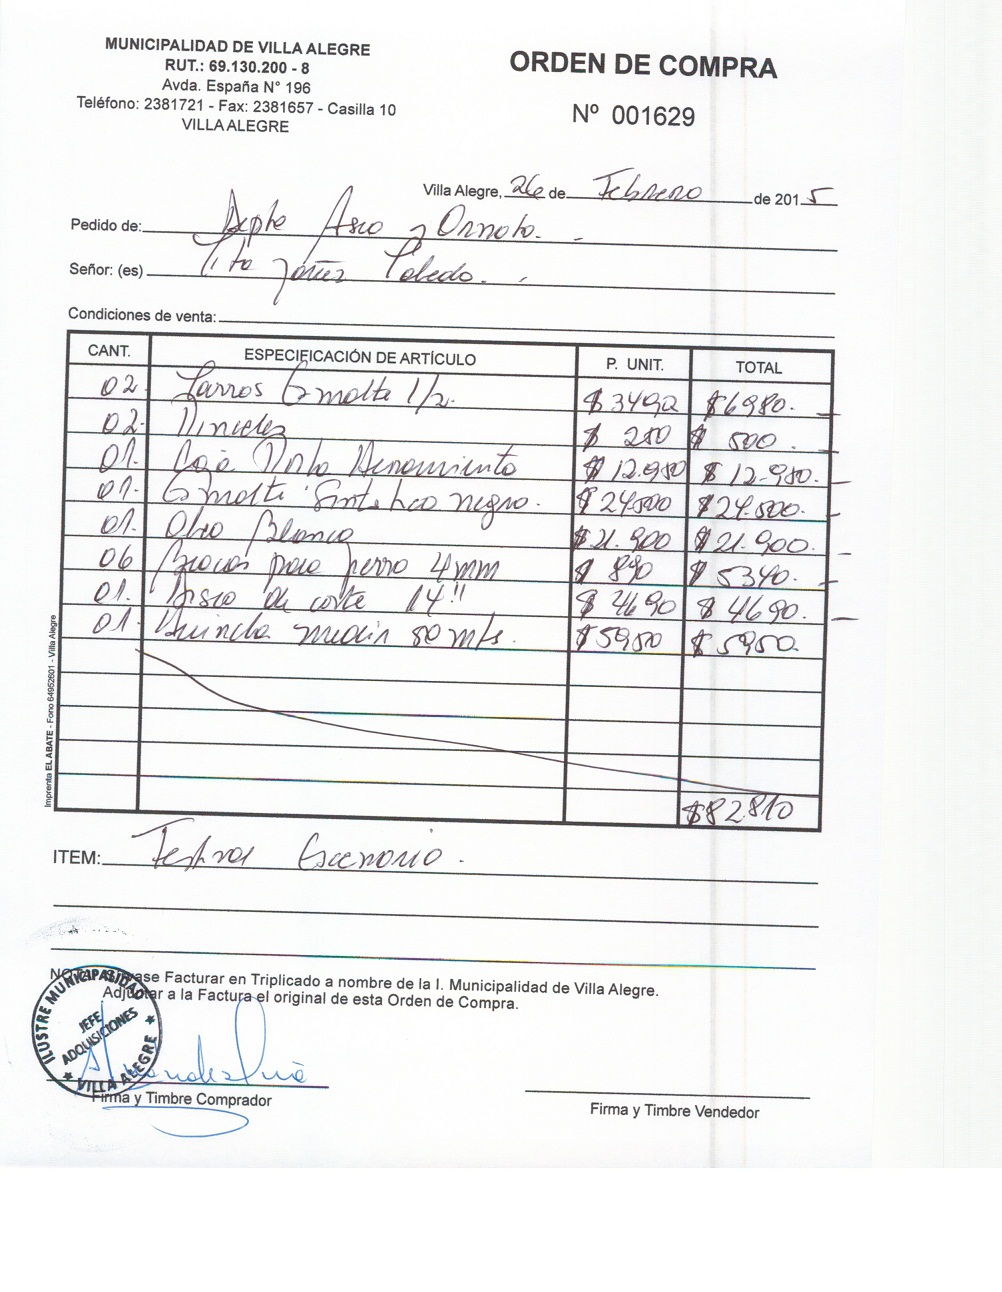 MUNICIPALIDAD DE VILLA ALEGRE
RUT.: 69.130.200 - 8
Avda. España N° 196
Teléfono: 2381721 - Fax: 2381657 - Casilla 10
VILLA ALEGRE
ORDEN DE COMPRA
Nº 001629
Villa Alegre, 26 de Febrero de 2015
Pedido de: Depto Aseo y Ornato.
Señor: (es) Tito Yáñez Toledo.
Condiciones de venta:
CANT. ESPECIFICACIÓN DE ARTÍCULO P. UNIT. TOTAL
02 Tarros Esmalte 1/2. $ 3490 $ 6980.
02. Pinceles $ 250 $ 500
01. Caja $ 12.950 $ 12.950.
01. Esmalte Sintetico negro. $ 24.500 $ 24.500.
01. Otro Blanco $ 21.900 $ 21.900.
06 Brocas para fierro 4mm $ 890 $ 5340.
01. Disco de corte 14" $ 4690 $ 4690.
01. Huincha medir 50 mts. $ 5950 $ 5950.
$82.810
ITEM: Festival Escenario.
Sírvase Facturar en Triplicado a nombre de la I. Municipalidad de Villa Alegre.
Adjuntar a la Factura el original de esta Orden de Compra.
ILUSTRE MUNICIPALIDAD
JEFE
ADQUISICIONES
VILLA ALEGRE
Firma y Timbre Comprador
Firma y Timbre Vendedor
Imprenta EL ABATE - Fono 64952601 - Villa Alegre